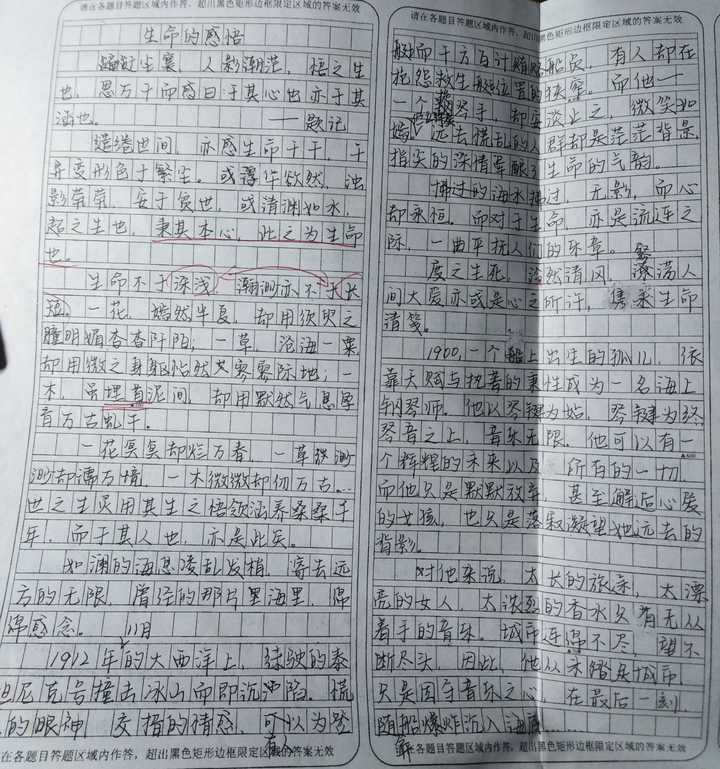 请在各题目答题区域内作答，超出黑色矩形边框限定区域的答案无效
生命的感悟
尘寰，人影渺茫，悟之生
也，思万千而感曰于其心也亦于其
涵也。
——题记
缱绻世间，亦感生命千千，千
异变形色于繁尘。或薄华欲然，浊
影茕茕，安于贫世，或清渊如水，
超之生也，秉其本心，此之为生命
也。
生命不于深浅，亦不于长
短。一花，嫣然半夏，却用须臾之
瞳明媚杳杳阡陌；一草，沧海一粟，
却用微之身躯怡然寥寥际地；一
木，虽埋首泥间，却用默然气息孕
育万古虬干。
一花寞寞却烂万春，一草
却濡万境，一木微微却仞万古。
世之生灵用其生之悟领涵养桑桑千
年，而于其人也，亦是此矣。
如渊的海思凌乱发梢，寄去远
方的无限，曾经的那片里海里，绵
绵感念。
1912年的大西洋上，
坦尼克号撞击冰山而即沉陷。慌
的眼神，交措的情感，可以为登
请在各题目答题区域内作答，超出黑色矩形边框限定区域的答案无效
请在各题目答题区域内作答，超出黑色矩形边框限定区域的答案无效
艇而千方百计贿赂船员，有人却在
抱怨救生艇位置的狭窄。而他——
一个钢琴手，却安淡之，微笑如
嫣，远去慌乱的人群却是茫茫背景，
指尖的深情导酿了生命的气韵。
拂过的海水拂过，无影，而心
却永恒。而对于生命，亦是流连之
际，一曲平抚人们的乐章。
度之生死，清风，满人
间大爱亦或是心之所许，生命
清笺。
1900，一个船上出生的孤儿，依
靠天赋与执著的秉性成为一名海上
钢琴师。他以琴键为始，琴键为终，
琴音之上，音乐无限。他可以有一
个辉煌的未来以及所有的一切，
而他只是默默放弃，甚至邂逅心爱
的女孩，也只是落寂凝望她远去的
背影。
对他来说，太长的旅途，太漂
亮的女人，太浓烈的香水久有无从
着手的音乐。城市连得不尽，望不
断尽头，因此，他从未踏足城市，
只是固守音乐之心，在最后一刻，
随船爆炸沉入海底……
请在各题目答题区域内作答，超出黑色矩形边框限定区域的答案无效